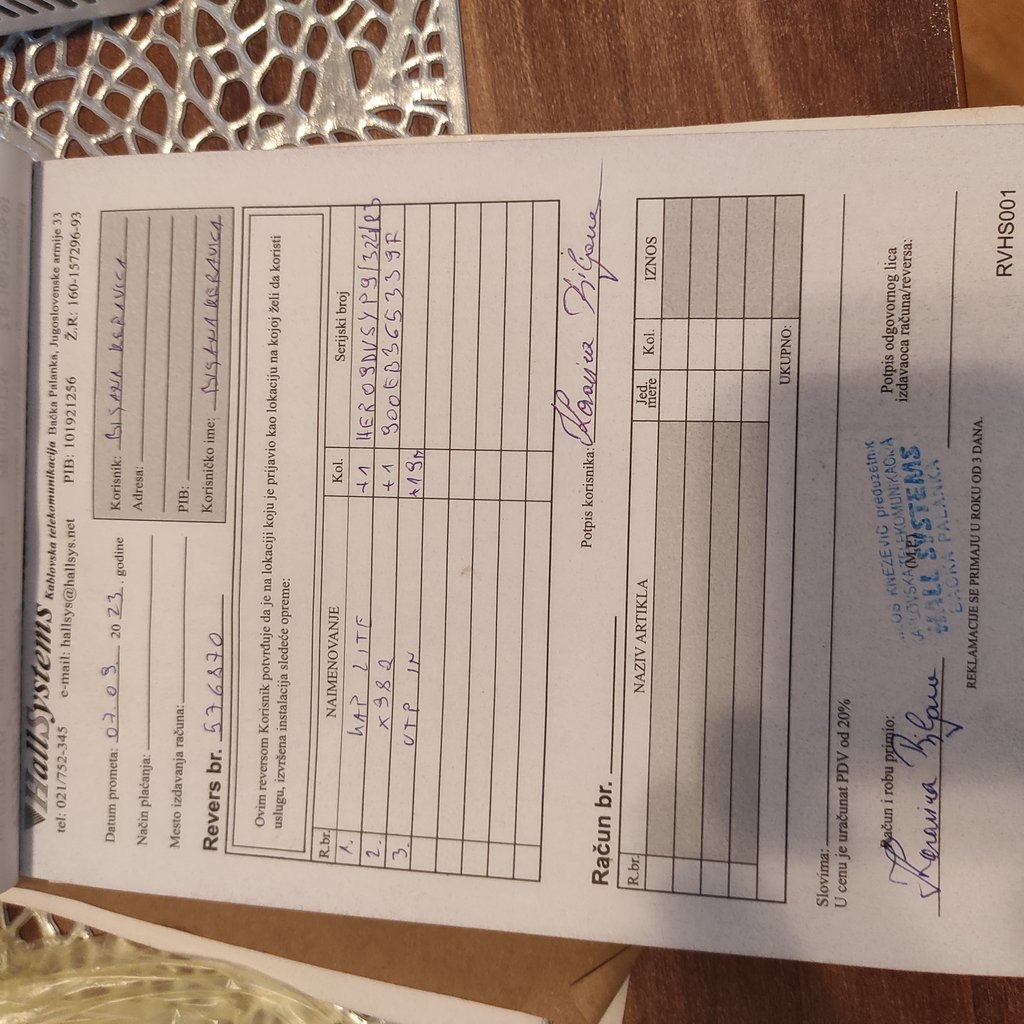 HallSystems Kablovska telekomunikacija Bačka Palanka, Jugoslovenske armije 33
tel: 021/752-345 e-mail: hallsys@hallsys.net PIB: 101921256 Ž.R: 160-157296-93
Datum prometa: 07.09. 2023. godine
Način plaćanja:
Mesto izdavanja računa:
Revers br. 576870
Korisnik: BILJANA KERAVICA
Adresa:
PIB:
Korisničko ime: BILJANA KERAVICA
Ovim reversom Korisnik potvrđuje da je na lokaciji koju je prijavio kao lokaciju na kojoj želi da koristi
uslugu, izvršena instalacija sledeće opreme:
R.br. NAIMENOVANJE Kol. Serijski broj
1. HAP LITE +1
2. X982 +1 900EB365339F
3. UTP IN +19m
Potpis korisnika: Keravica Biljana
Račun br.
R.br. NAZIV ARTIKLA Jed. mere Kol. IZNOS
UKUPNO:
Slovima:
U cenu je uračunat PDV od 20%
Račun i robu primio:
Keravica Biljana
(M.P.)
KNEZEVIĆ preduzetnik
KABLOVSKA TELEKOMUNIKACIJA
HALL SYSTEMS
BAČKA PALANKA
Potpis odgovornog lica
izdavaoca računa/reversa:
REKLAMACIJE SE PRIMAJU U ROKU OD 3 DANA.
RVHS001